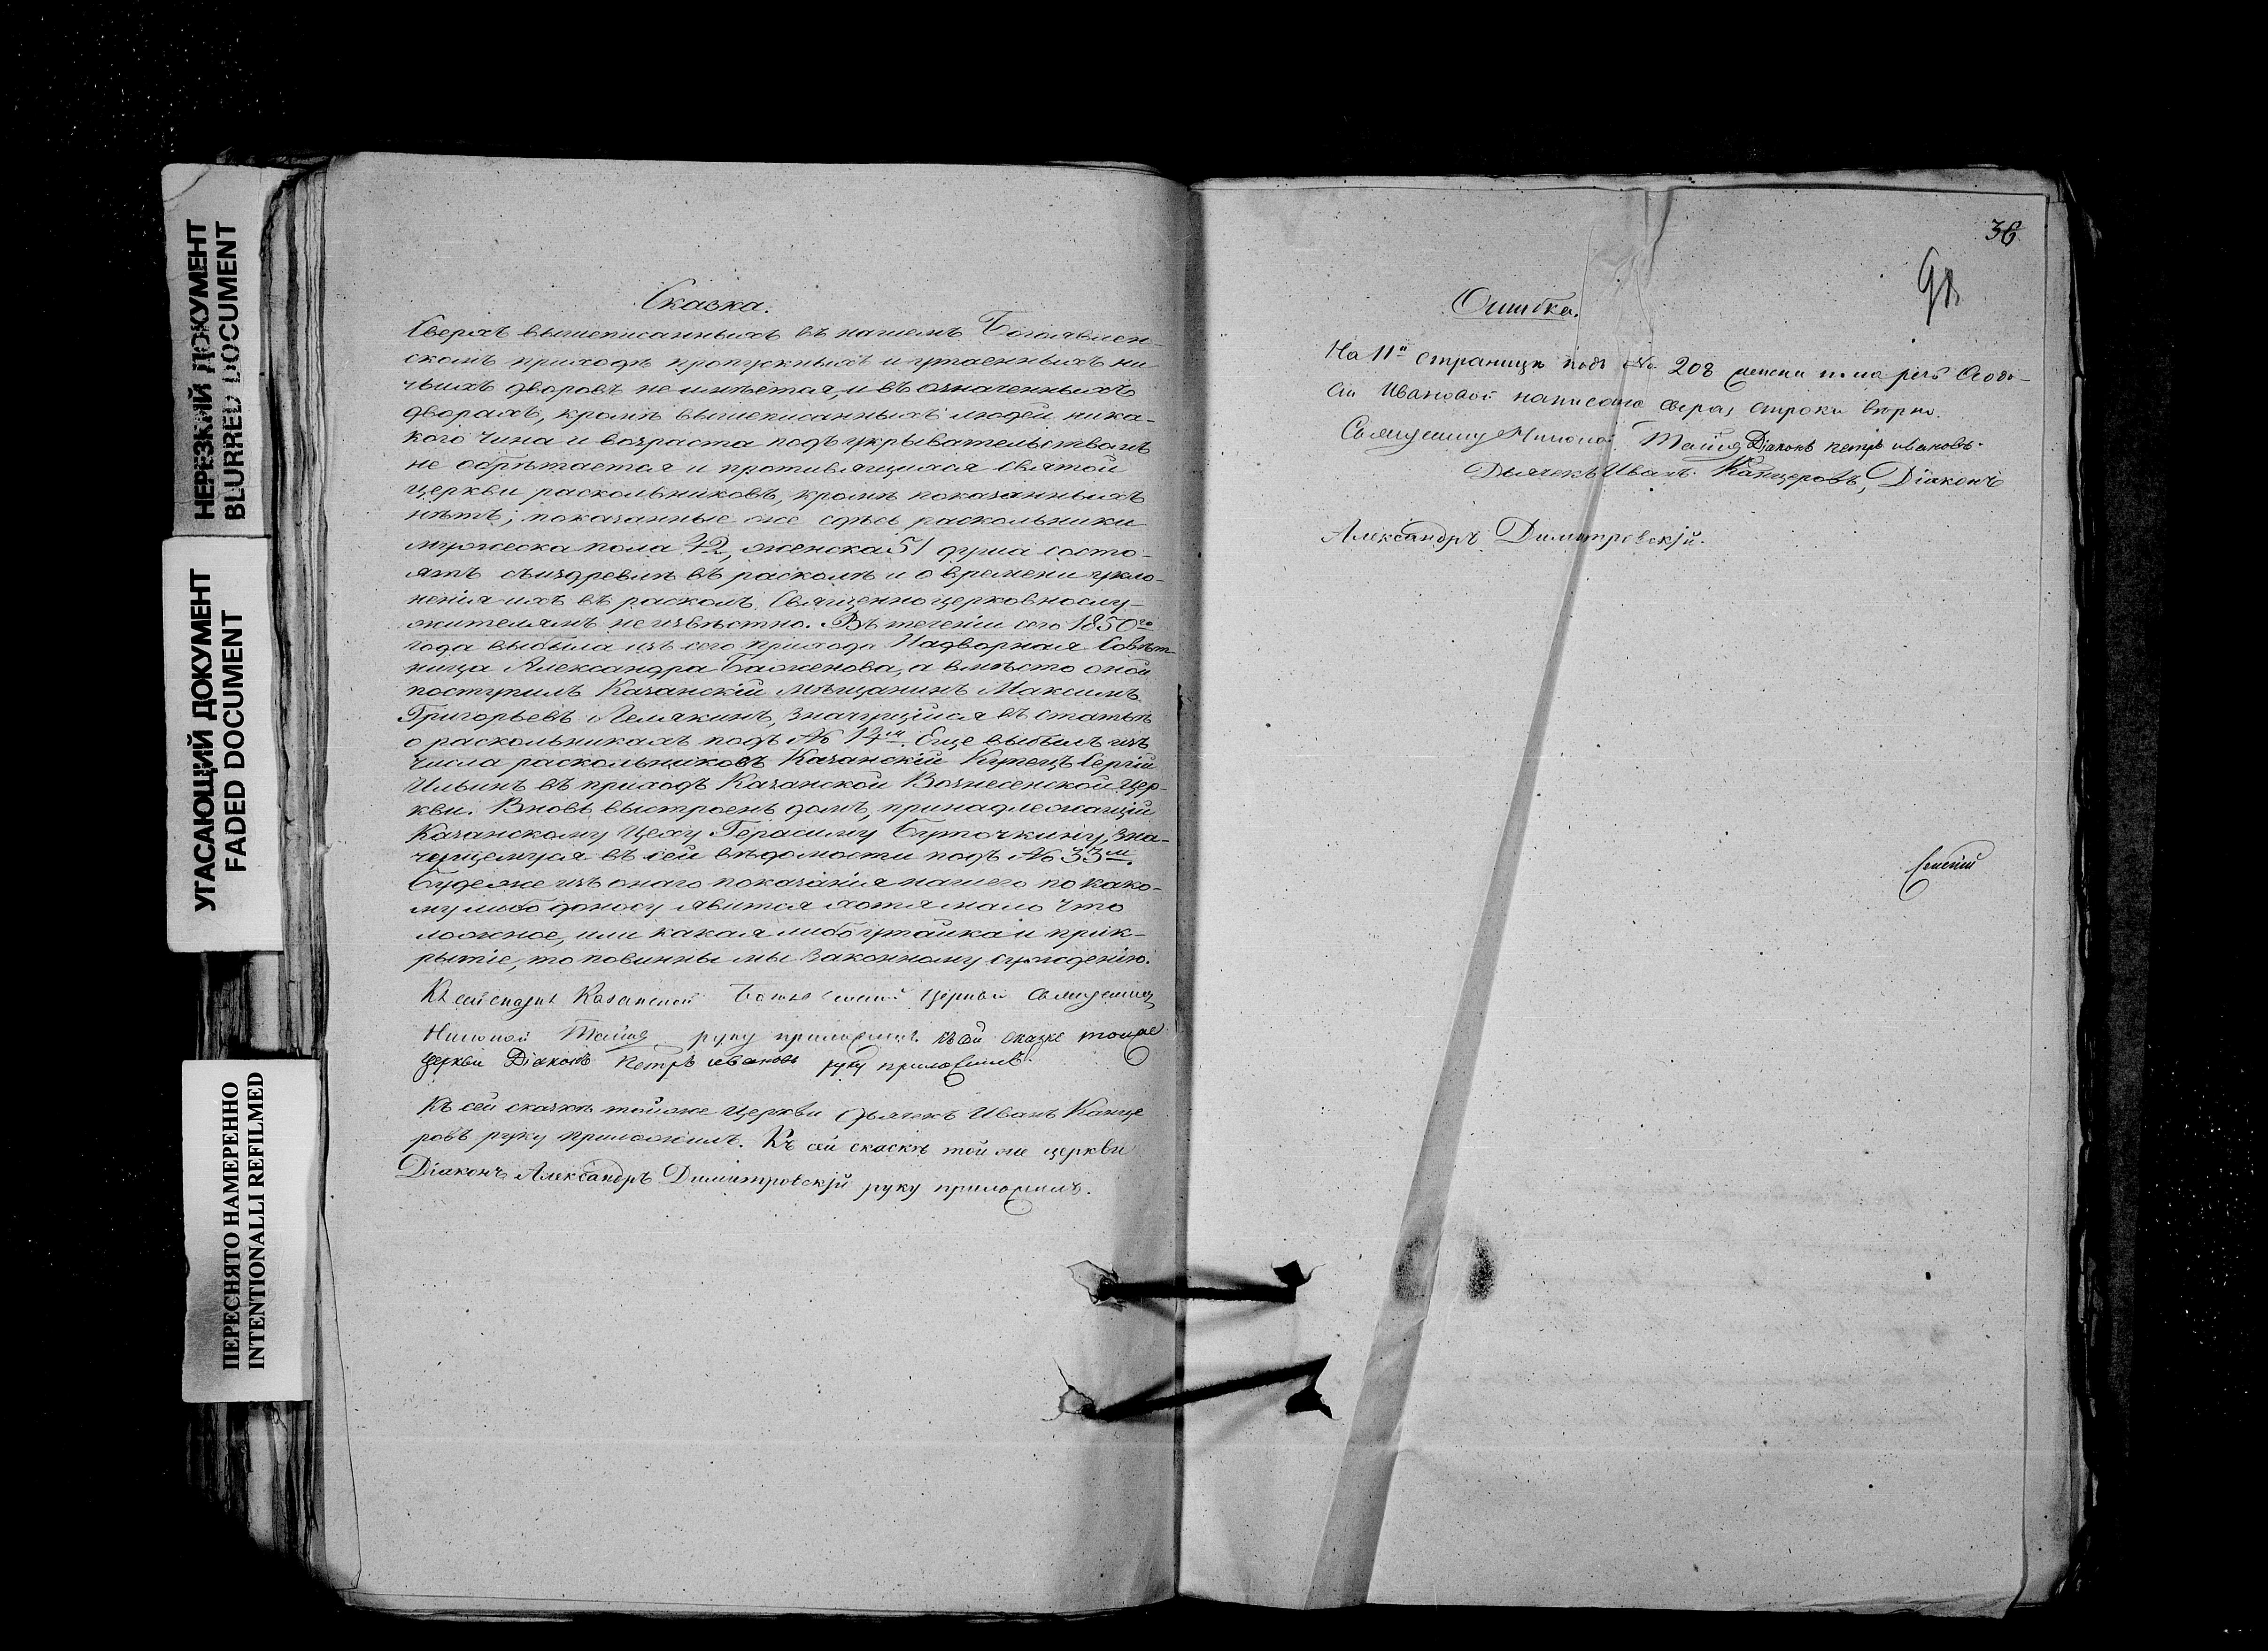 НЕРЕЗКИЙ ДОКУМЕНТ
BLURRED DOCUMENT
УГАСАЮЩИЙ ДОКУМЕНТ
FADED DOCUMENT
ПЕРЕСНЯТО НАМЕРЕННО
INTENTIONALLI REFILMED
Сказка.
Сверхъ вышеписанныхъ въ нашемъ Богоявлен-
скомъ приходѣ пропускныхъ и утаенныхъ ни
чьихъ дворовъ не имѣется, и въ означенныхъ
дворахъ, кромѣ вышеписанныхъ людей, ника-
кого чина и возраста подъ укрывательствомъ
не обрѣтается и противящихся Святой
церкви раскольниковъ, кромѣ показанныхъ
нѣтъ; показанные же здѣсь раскольники
мужеска пола 42, женска 51 душа состо-
ятъ съиздревлѣ въ расколѣ и о времени укло-
ненія ихъ въ расколъ Священноцерковнослу-
жителямъ не извѣстно. Въ теченіи сего 1850го
года выбыла изъ сего прихода Надворная Совѣт-
ница Александра Баженова, а вмѣсто оной
поступилъ Казанскій мѣщанинъ Максимъ
Григорьевъ Лемякинъ, значущійся въ статьѣ
о раскольникахъ подъ № 14м. Еще выбылъ изъ
числа раскольниковъ Казанскій Купецъ Сергій
Ильинъ въ приходъ Казанской Вознесенской цер-
кви. Вновь выстроенъ домъ, принадлежащій
Казанскому Цеху Герасиму Буточкину, зна-
чущемуся въ сей вѣдомости подъ № 33м.
Буде же изъ онаго показанія нашего по како-
му либо доносу явится хотя мало что
ложное, или какая либо утайка и прик-
рытіе, то повинны мы законному сужденію.
Къ сей сказкѣ Казанской Богоявленской церкви Священникъ
Николай руку приложилъ. Къ сей сказке тойже
церкви Діаконъ Петръ Ивановъ руку приложилъ.
Къ сей сказкѣ тойже церкви дьячекъ Иванъ Канце
ровъ руку приложилъ. Къ сей сказкѣ той же церкви
Діаконъ Александръ Димитровскій руку приложилъ.
36
98
Ошибка.
На 11й страницѣ подъ № 208 женска пола Ѳеодо-
сіи Ивановой написано сверхъ строки вѣрно.
Священникъ Николай Діаконъ Петръ Ивановъ.
Дьячекъ Иванъ Канцеровъ, Діаконъ
Александръ Димитровскій.